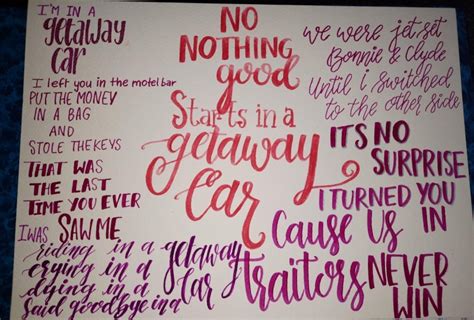 I'M IN A
getaway
car
I left you in the motel bar
PUT THE MONEY
IN A BAG
AND
STOLE THE KEYS
THAT WAS
THE LAST
TIME YOU EVER
SAW ME
NO
NOTHING
good
Starts in a
getaway
Car
we were jet set
Bonnie & Clyde
Until i switched
to the other side
ITS NO
SURPRISE
I TURNED YOU
IN
Cause Us
traitors
NEVER
WIN
I WAS
riding in a getaway
crying in a
Car
dying in a
Said goodbye in a